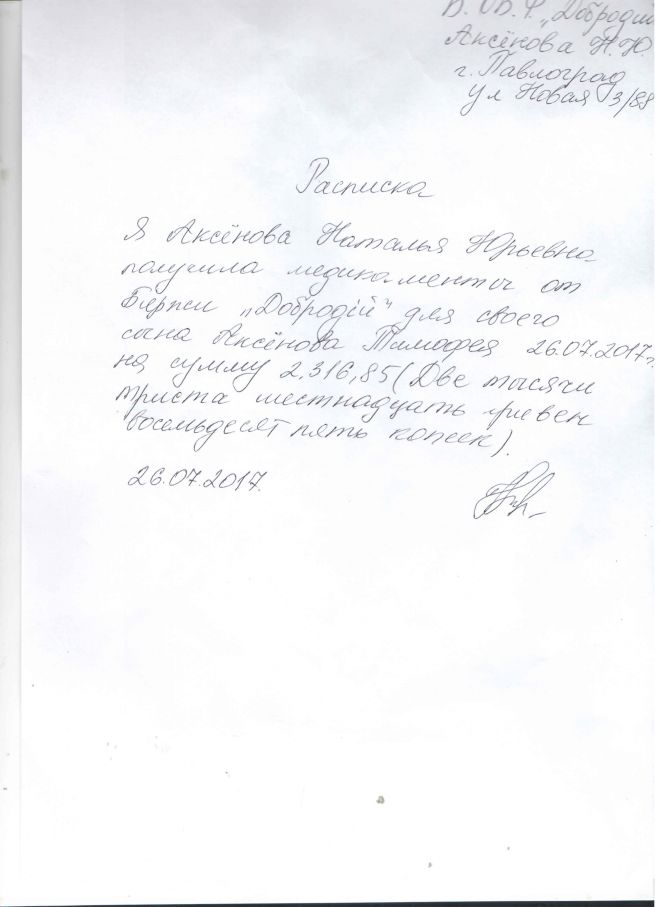 В. О.Б.Ф. „Добродій
Аксёнова Н.Ю.
г. Павлоград
ул Новая 3/88
Расписка
Я Аксёнова Наталья Юрьевна
получила медикаменты от
„Добродій" для своего
сына Аксёнова Тимофея 26.07.2017г.
на сумму 2.316,85 (Две тысячи
триста шестнадцать гривен
восемьдесят пять копеек).
26.07.2017.